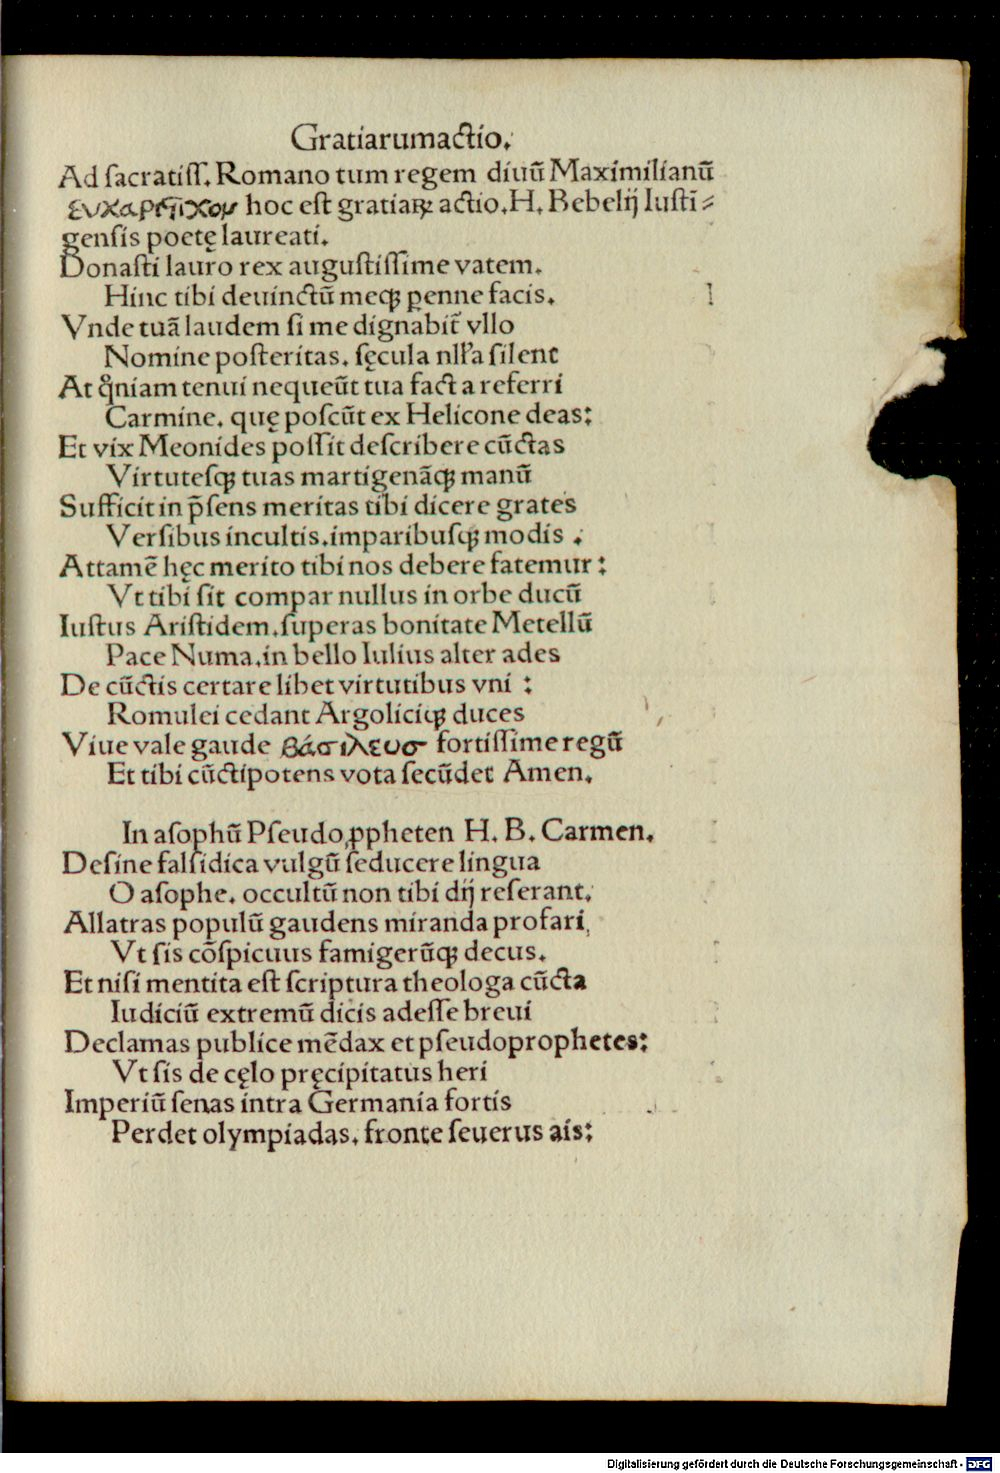 Gratiarumactio.
Ad sacratiss. Romano tum regem diuū Maximilianū
ευχαριςιχον hoc est gratiaꝝ actio. H. Bebelij Iusti⸗
gensis poetę laureati.
Donasti lauro rex augustissime vatem.
Hinc tibi deuinctū meqꝫ ꝑenne facis.
Vnde tuā laudem si me dignabit᷑ vllo
Nomine posteritas. sęcula nlľa silent
At qͦniam tenui nequeūt tua fact a referri
Carmine. quę poscūt ex Helicone deas:
Et vix Meonides possit describere cūctas
Virtutesqꝫ tuas martigenāqꝫ manū
Sufficit in p̄sens meritas tibi dicere grates
Versibus incultis. imparibusqꝫ modis .
Attamē hęc merito tibi nos debere fatemur:
Vt tibi sit compar nullus in orbe ducū
Iustus Aristidem. superas bonitate Metellū
Pace Numa. in bello Iulius alter ades
De cūctis certare libet virtutibus vni :
Romulei cedant Argoliciqꝫ duces
Viue vale gaude βάσιλευσ fortissime regū
Et tibi cūctipotens vota secūdet Amen.
In asophū Pseudoꝓpheten H. B. Carmen.
Desine falsidica vulgū seducere lingua
O asophe. occultū non tibi dij reserant.
Allatras populū gaudens miranda profari,
Vt sis cōspicuus famigerūqꝫ decus.
Et nisi mentita est scriptura theologa cūcta
Iudiciū extremū dicis adesse breui
Declamas publice mēdax et pseudoprophetes:
Vt sis de cęlo pręcipitatus heri
Imperiū senas intra Germania fortis
Perdet olympiadas. fronte seuerus ais:
Digitalisierung gefördert durch die Deutsche Forschungsgemeinschaft - DFG